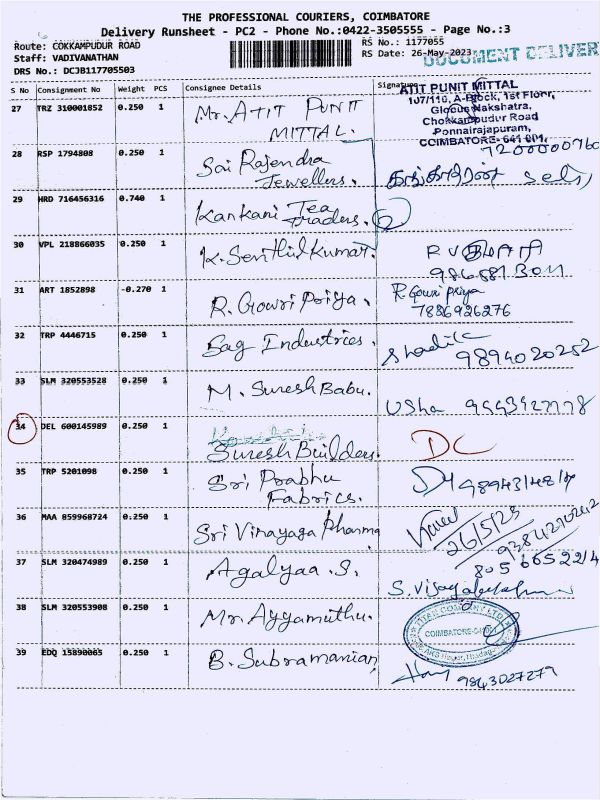 THE PROFESSIONAL COURIERS, COIMBATORE
Delivery Runsheet - PC2 - Phone No.:0422-3505555 - Page No.:3
Route: COKKAMPUDUR ROAD
RS No.: 1177055
Staff: VADIVANATHAN
RS Date: 26-May-2023
DOCUMENT DELIVER
DRS No.: DCJB117705503
S No Consignment No Weight PCS Consignee Details Signature
ATIT PUNIT MITTAL
107/110, A-Block, 1st Floor,
Globus Nakshatra,
Chokkampudur Road
Ponnairajapuram,
COIMBATORE- 641 001.
27 TRZ 310001852 0.250 1 Mr. Atit Punit
MITTAL.
7200000760
28 RSP 1794808 0.250 1 Sai Rajendra
Jewellers.
29 HRD 716456316 0.740 1 Kankani Tea
Traders.
30 VPL 218866035 0.250 1 K. Senthil Kumar.
31 ART 1852898 -0.270 1 R. Gowri Priya. R. Gowri priya
7886926276
32 TRP 4446715 0.250 1 Sag Industries.
9894020252
33 SLM 320553528 0.250 1 M. Suresh Babu. Usha
34 DEL 600145989 0.250 1 Suresh Builders. DC
35 TRP 5201098 0.250 1 Sri Prabhu
Fabrics.
36 MAA 859968724 0.250 1 Sri Vinayaga Pharma
26/5/23
37 SLM 320474989 0.250 1 Agalyaa .S.
38 SLM 320553908 0.250 1 Mr. Ayyamuthu.
TITAN COMPANY LTD
COIMBATORE
39 EDQ 15890065 0.250 1 B. Subramanian
9843027279